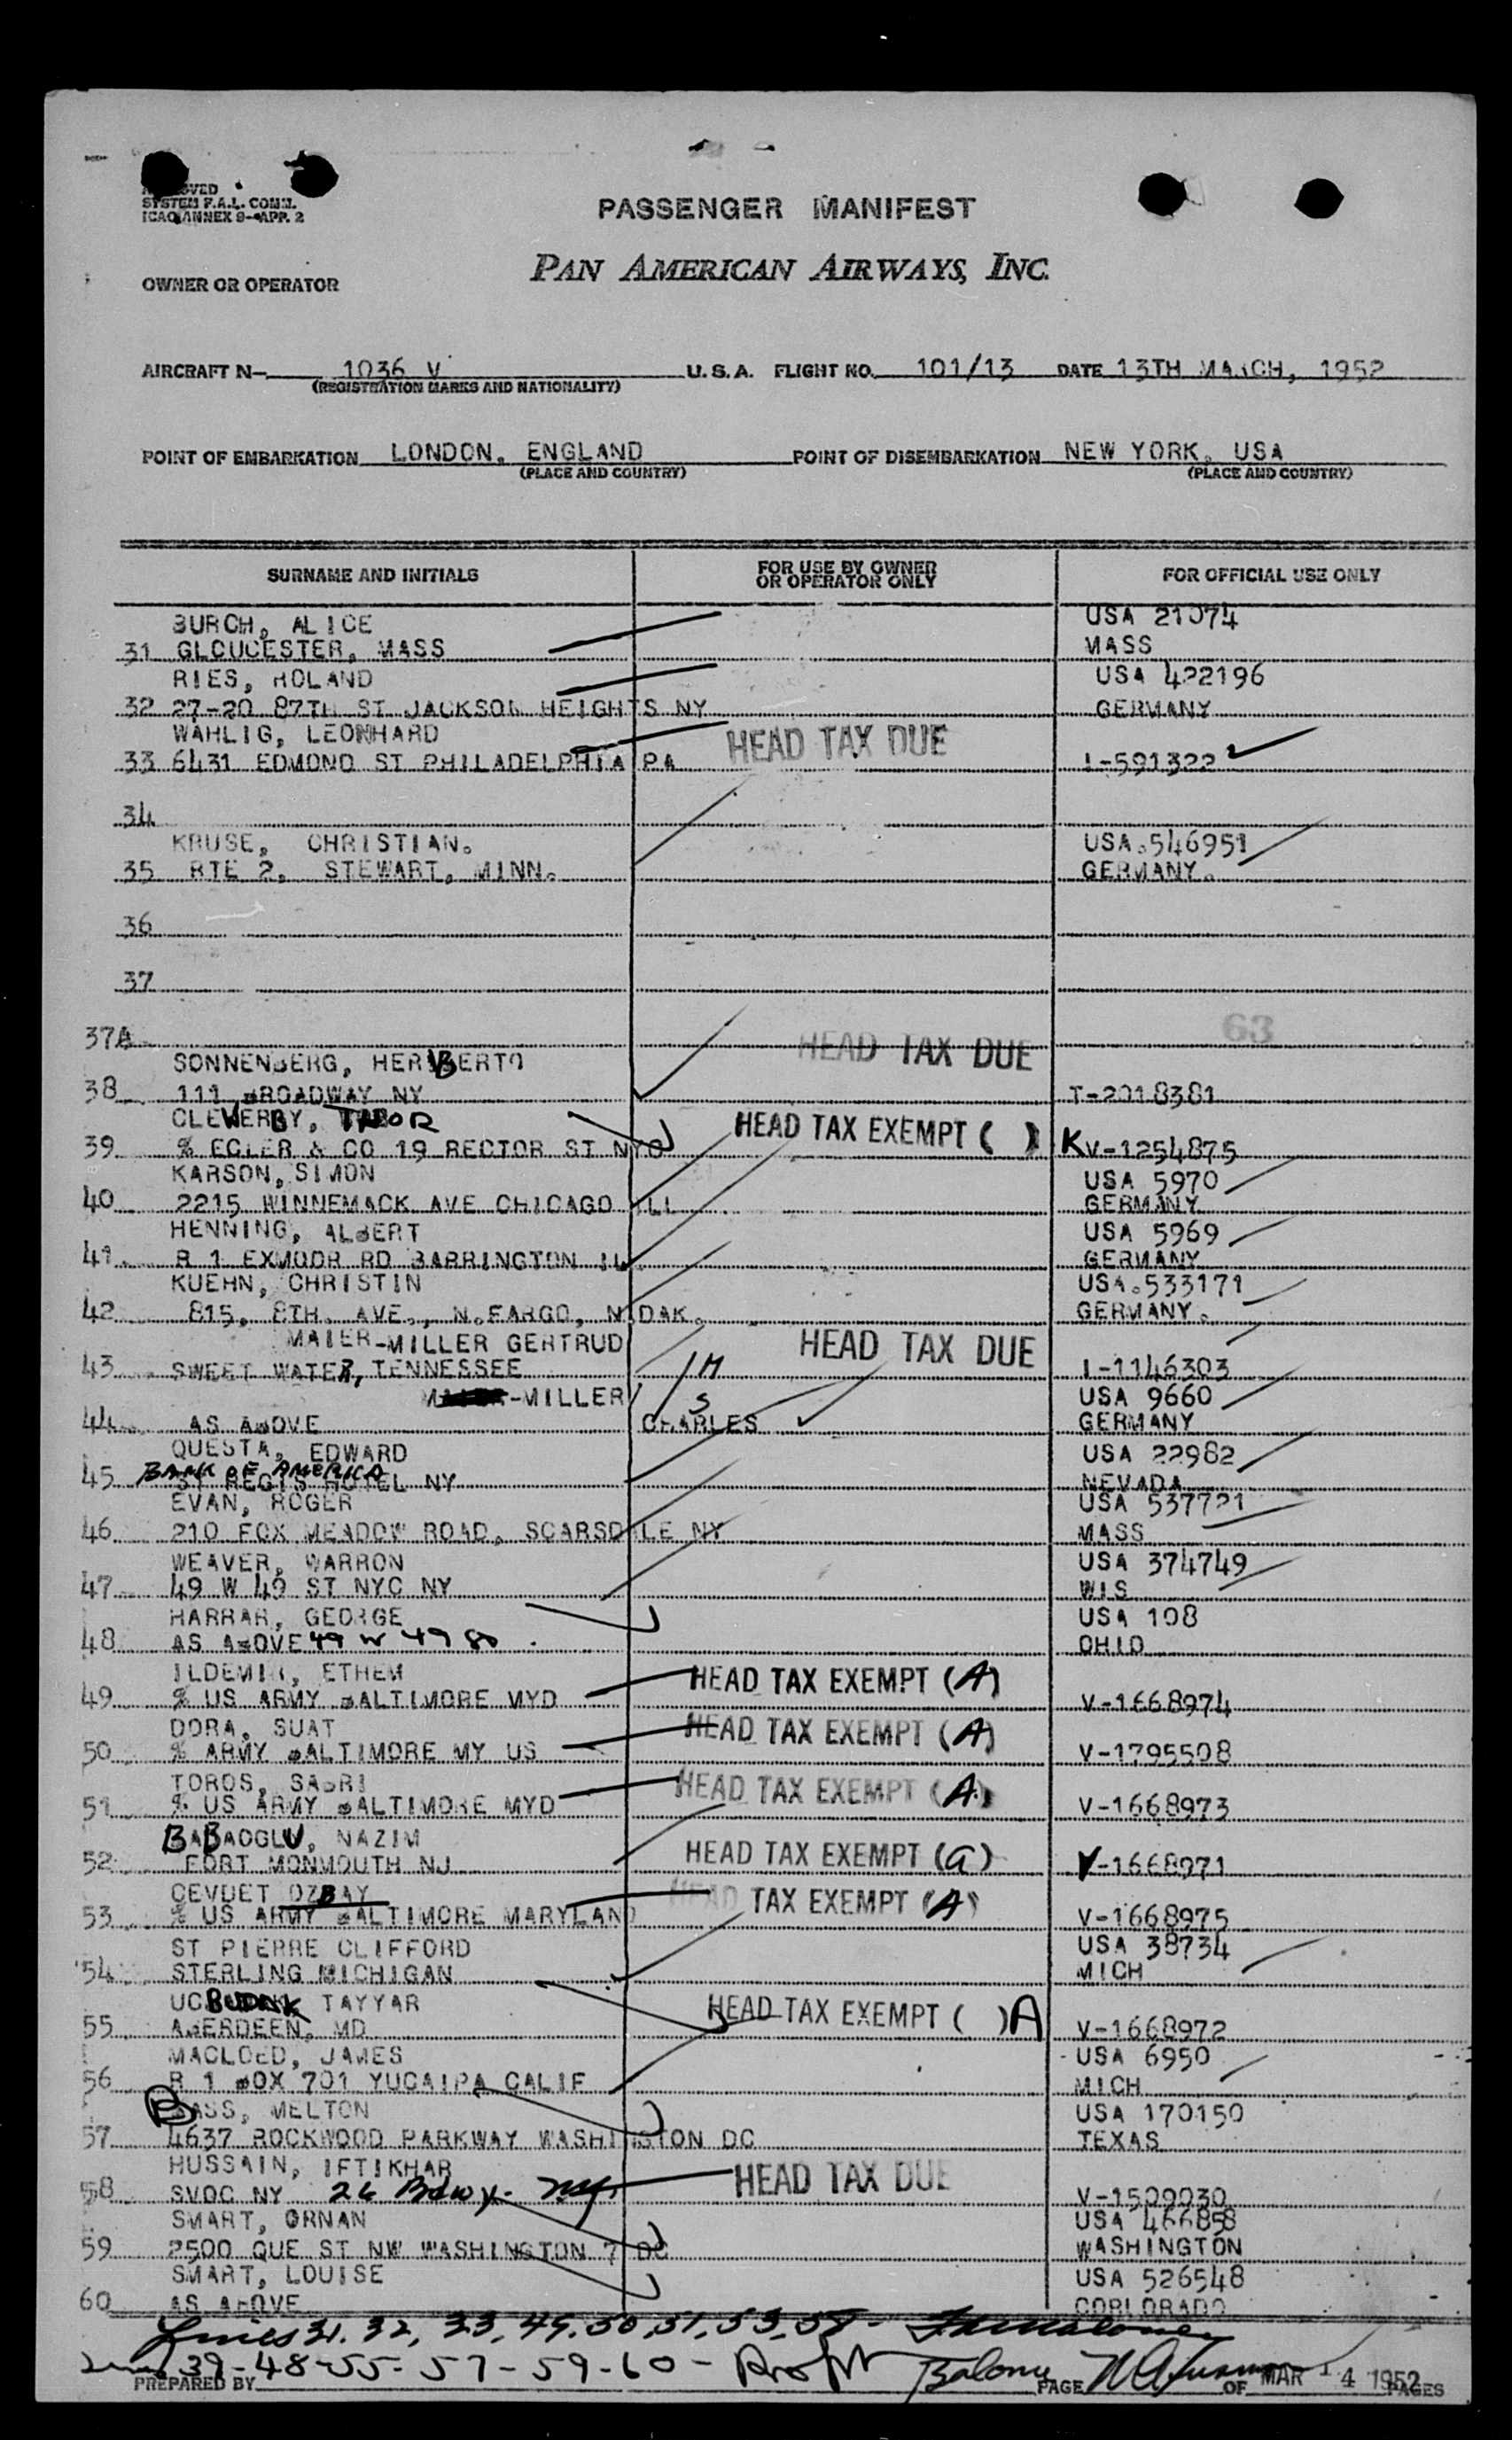 SYSTEM F.A.L. COMM.
ICAO ANNEX 9-APP. 2
PASSENGER MANIFEST
PAN AMERICAN AIRWAYS, INC.
OWNER OR OPERATOR
AIRCRAFT N- 1036 V U.S.A. FLIGHT NO. 101/13 DATE 13TH MARCH, 1952
(REGISTRATION MARKS AND NATIONALITY)
POINT OF EMBARKATION LONDON, ENGLAND POINT OF DISEMBARKATION NEW YORK, USA
(PLACE AND COUNTRY) (PLACE AND COUNTRY)
SURNAME AND INITIALS FOR USE BY OWNER OR OPERATOR ONLY FOR OFFICIAL USE ONLY
BURCH, ALICE USA 21074
31 GLOUCESTER, MASS MASS
RIES, ROLAND USA 422196
32 27-20 87TH ST JACKSON HEIGHTS NY GERMANY
WAHLIG, LEONHARD HEAD TAX DUE
33 6431 EDMOND ST PHILADELPHIA PA I-591322
34
KRUSE, CHRISTIAN. USA.546951
35 RTE 2, STEWART, MINN. GERMANY.
36
37
63
37A HEAD TAX DUE
SONNENBERG, HERIBERTO
38 111 BROADWAY NY T-2018381
CLEVERBY, HEAD TAX EXEMPT ( )
39 % EGLER & CO 19 RECTOR ST NYC KV-1254875
KARSON, SIMON USA 5970
40 2215 WINNEMACK AVE CHICAGO ILL GERMANY
HENNING, ALBERT USA 5969
41 R 1 EXMOOR RD BARRINGTON IL GERMANY
KUEHN, CHRISTIN USA.533171
42 815, 8TH. AVE., N.FARGO, N DAK. GERMANY.
MAIER-MILLER GERTRUD HEAD TAX DUE
43 SWEET WATER, TENNESSEE M I-1146303
-MILLER S USA 9660
44 AS ABOVE CHARLES GERMANY
QUESTA, EDWARD USA 22982
BANK OF AMERICA
45 ST REGIS HOTEL NY NEVADA
EVAN, ROGER USA 537721
46 210 FOX MEADOW ROAD, SCARSDALE NY MASS
WEAVER, WARRON USA 374749
47 49 W 49 ST NYC NY WIS
HARRAR, GEORGE USA 108
48 AS ABOVE 49 W 49 St OHIO
ILDEMIR, ETHEM HEAD TAX EXEMPT (A)
49 % US ARMY BALTIMORE MYD V-1668974
DORA, SUAT HEAD TAX EXEMPT (A)
50 % ARMY BALTIMORE MY US V-1795508
TOROS, SABRI HEAD TAX EXEMPT (A)
51 % US ARMY BALTIMORE MYD V-1668973
BABAOGLU, NAZIM HEAD TAX EXEMPT (a)
52 FORT MONMOUTH NJ V-1668971
CEVDET OZBAY HEAD TAX EXEMPT (A)
53 % US ARMY BALTIMORE MARYLAND V-1668975
ST PIERRE CLIFFORD USA 38734
54 STERLING MICHIGAN MICH
UCBUDAK TAYYAR HEAD TAX EXEMPT ( )A
55 ABERDEEN, MD V-1668972
MACLOED, JAMES USA 6950
56 R 1 BOX 701 YUCAIPA CALIF MICH
BASS, MELTON USA 170150
57 4637 ROCKWOOD PARKWAY WASHINGTON DC TEXAS
HUSSAIN, IFTIKHAR HEAD TAX DUE
58 SVOC NY 26 Bdwy. NY V-1509030
SMART, ORNAN USA 466858
59 2500 QUE ST NW WASHINGTON 7 DC WASHINGTON
SMART, LOUISE USA 526548
60 AS ABOVE CORLORADO
Lines 31, 32, 33, 49, 50, 51, 53, 58 -
39-48-55-57-59-60-
PREPARED BY PAGE OF MAR 14 1952 PAGES